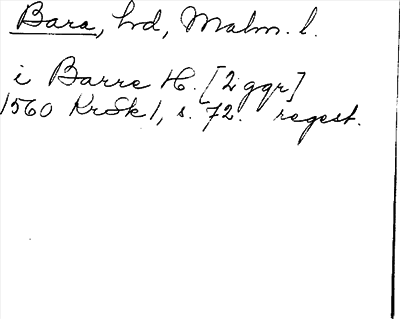 Bara, hd, Malm. l.
i Barre H. [2 ggr]
1560 KrSk 1, s. 72. regest.